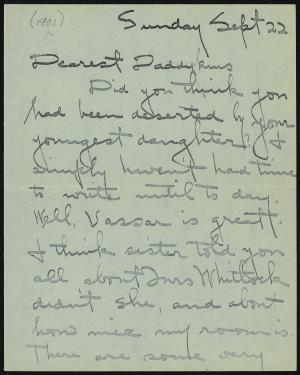 (1901)
Sunday Sept 22.
Dearest Daddykins
Did you think you
had been deserted by your
youngest daughter? I
simply haven't had time
to write until to day.
Well, Vassar is great.
I think sister told you
all about Mrs Whittock
didn't she, and about
how nice my room is.
There are some very